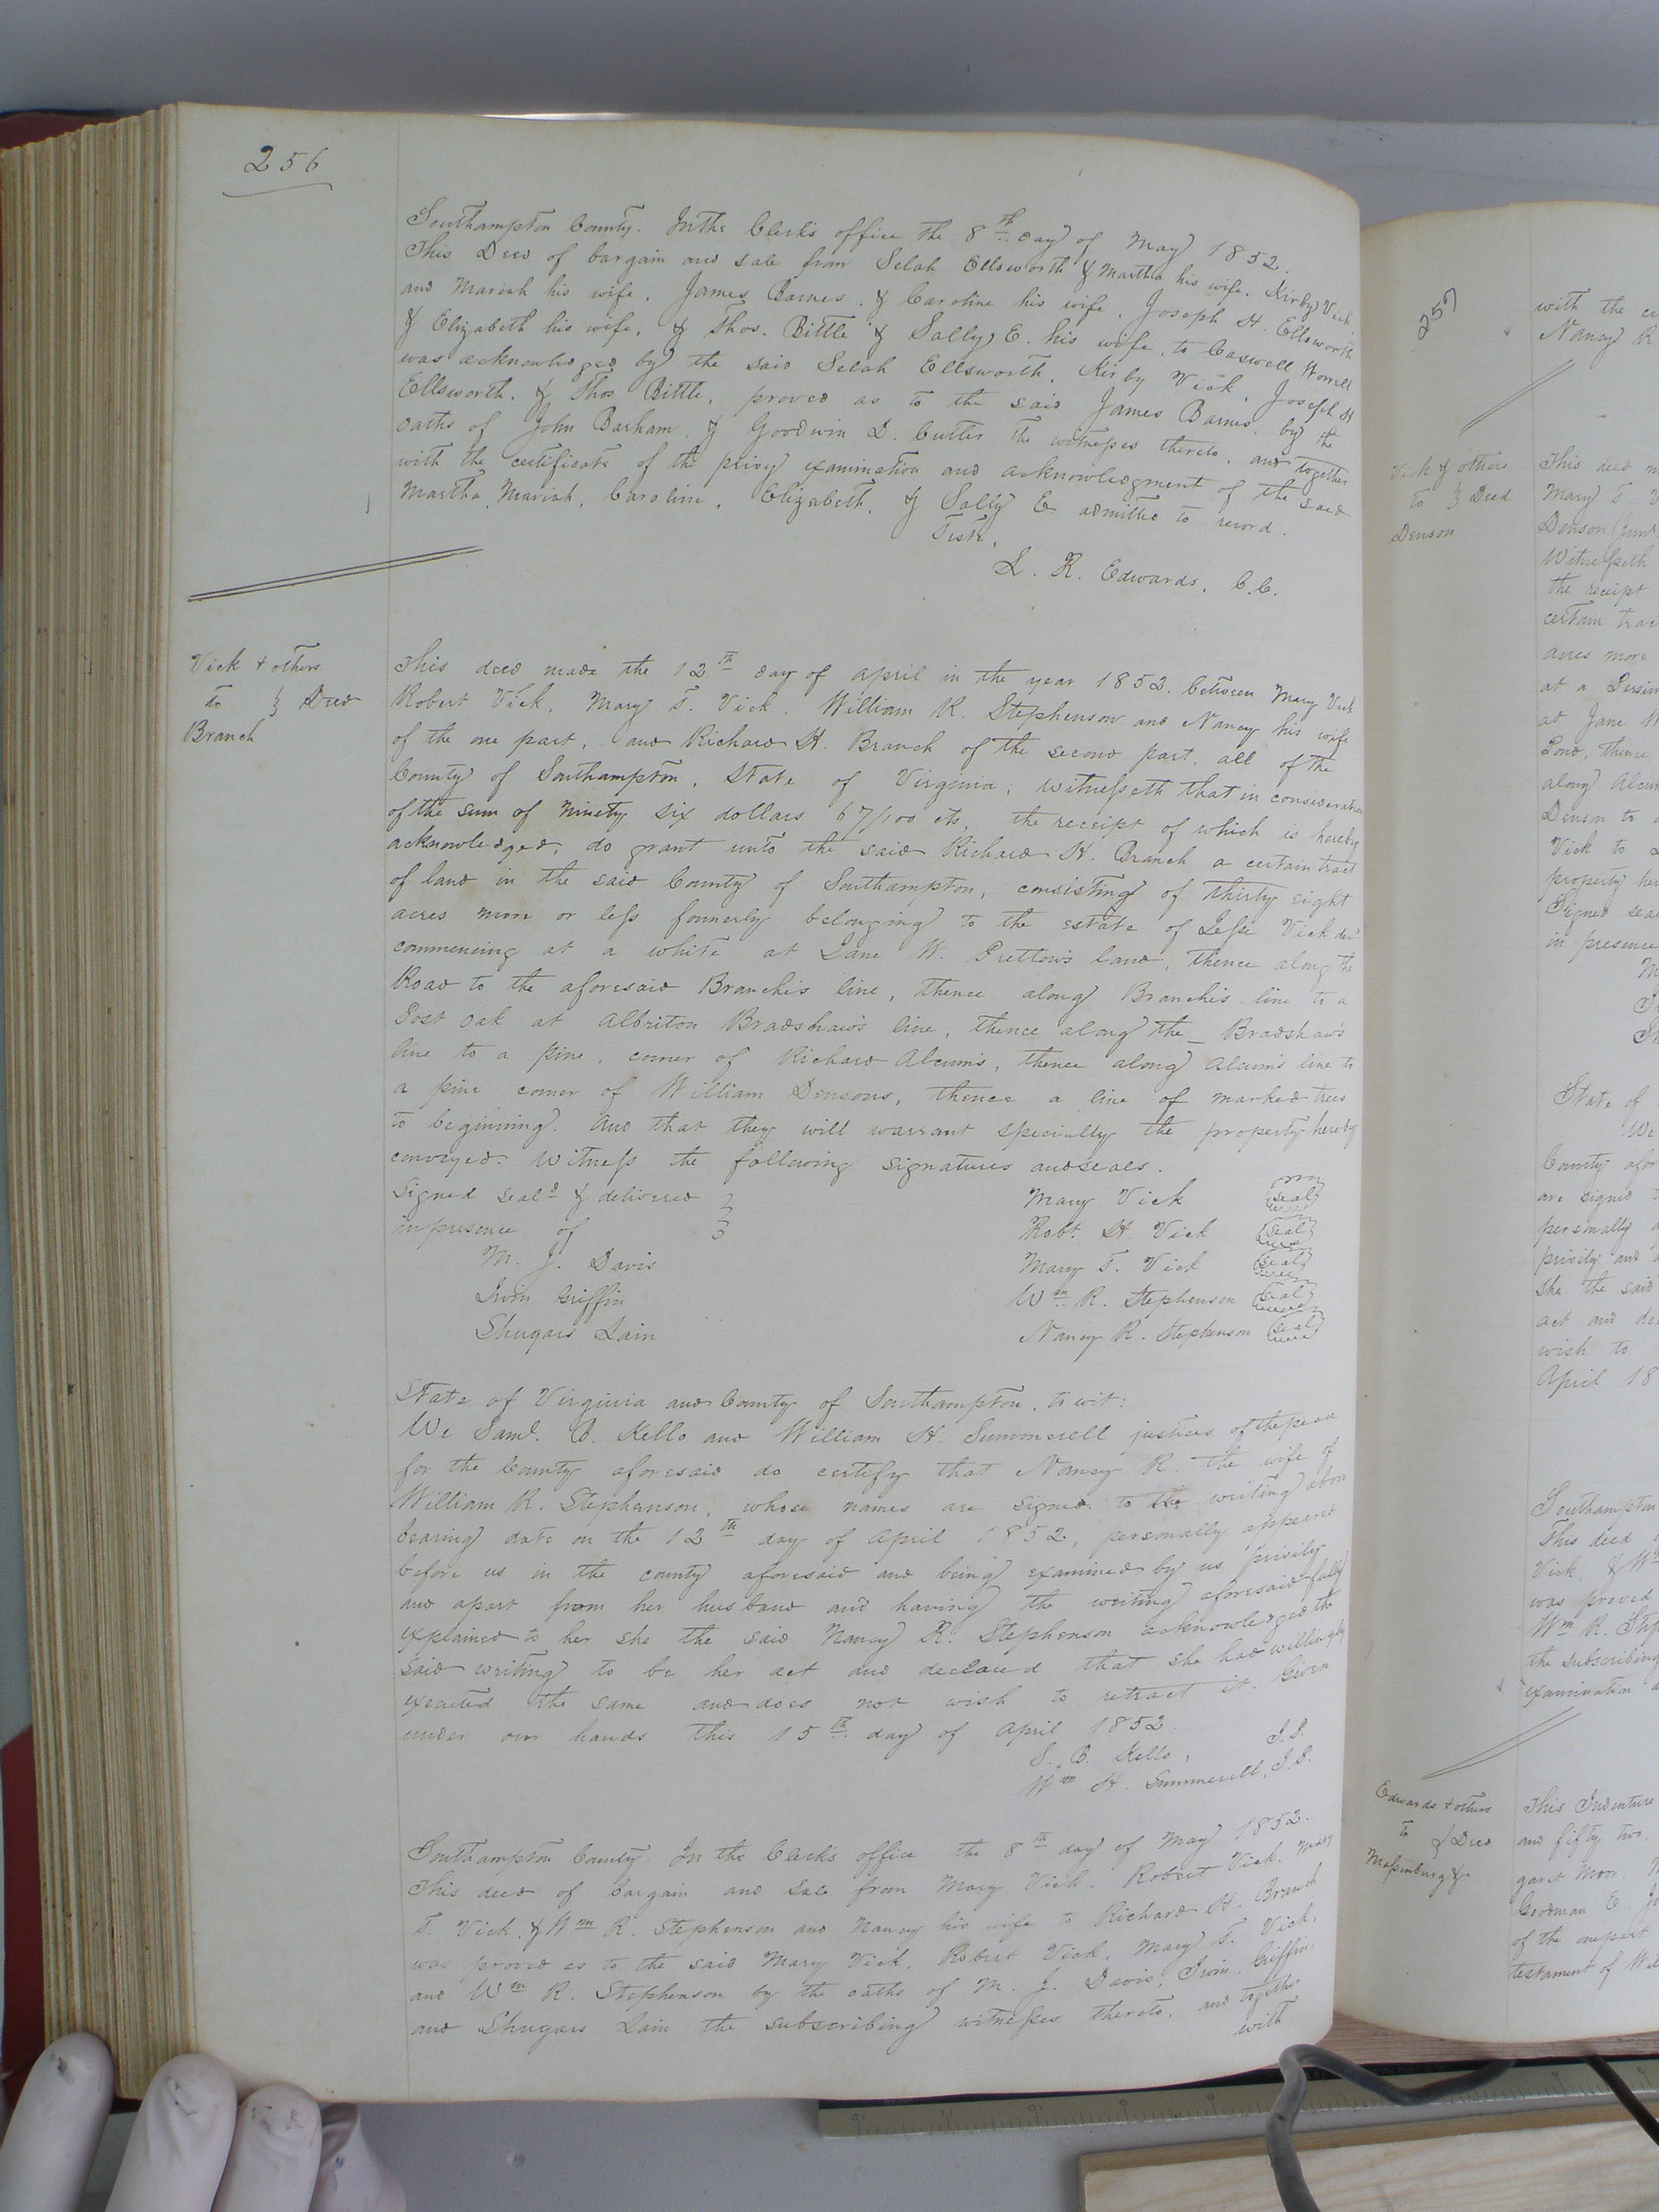 256
Southampton County. In the Clerk's office the 8th day of May 1852.
This Deed of bargain and sale from Selah Ellsworth & Martha his wife, Kirby Vick
and Mariah his wife, James Barnes, & Caroline his wife, Joseph H. Ellsworth
& Elizabeth his wife, & Thos. Bittle & Sally E. his wife, to Caswell Worrell
was acknowledged by the said Selah Ellsworth, Kirby Vick, Joseph H
Ellsworth, & Thos Bittle, proved as to the said James Barnes, by the
oaths of John Barham & Goodwin D. Cutler the witnesses thereto, and together
with the certificate of the privy examination and acknowledgment of the said
Martha, Mariah, Caroline, Elizabeth, & Sally E. admitted to record.
Teste,
L. R. Edwards, C.C.
Vick + others
to } Deed
Branch
This deed made the 12th day of April in the year 1852. between Mary Vick
Robert Vick, Mary T. Vick, William R. Stephenson and Nancy his wife
of the one part, and Richard H. Branch of the second part, all of the
County of Southampton, State of Virginia; Witnesseth that in consideration
of the sum of Ninety six dollars 67/100 cts, the receipt of which is hereby
acknowledged, do grant unto the said Richard H. Branch a certain tract
of land in the said County of Southampton, consisting of thirty eight
acres more or less formerly belonging to the estate of Jesse Vick decd
commencing at a white at Jane W. Pretlow's land, thence along the
Road to the aforesaid Branch's line, thence along Branch's line to a
Post oak at Albriton Bradshaw's line, thence along the _ Bradshaw's
line to a pine, corner of Richard Alcum's, thence along Alcum's line to
a pine corner of William Densons, thence a line of marked trees
to beginning. And that they will warrant specially the property hereby
conveyed. Witness the following signatures and seals.
Signed seald & delivered }
in presence of }
M. J. Davis
Irvin Griffin
Shugars Lain
Mary Vick seal
Robt. H. Vick seal
Mary T. Vick seal
Wm R. Stephenson seal
Nancy R. Stephenson seal
State of Virginia and County of Southampton, to wit:
We Saml. B. Kello and William H. Summerell justices of the peace
for the County aforesaid do certify that Nancy R. the wife of
William R. Stephenson, whose names are signed to the writing above
bearing date on the 12th day of April 1852, personally appeared
before us in the county aforesaid and being examined by us privily
and apart from her husband and having the writing aforesaid fully
explained to her she the said Nancy R. Stephenson acknowledged the
said writing to be her act and declared that she had willingly
executed the same and does not wish to retract it. Given
under our hands this 15th day of April 1852.
S. B. Kello, J.P.
Wm H. Summerell, J.P.
Southampton County. In the Clerk's office the 8th day of May 1852.
This deed of bargain and sale from Mary Vick, Robert Vick, Mary
T. Vick, & Wm R. Stephenson and Nancy his wife to Richard H. Branch
was proved as to the said Mary Vick, Robert Vick, Mary T. Vick,
and Wm R. Stephenson by the oaths of M. J. Davis, Irvin Griffin
and Shugars Lain the subscribing witnesses thereto, and together
with
257
with the
Nancy R
Vick & others
to } Deed
Denson
This deed
Mary T.
Denson
Witnesseth
the receipt
certain
acres more
at a
at Jane W
Pond, thence
along
Denson to
Vick to
property
Signed
in presence
State of
We
County
are signed
personally
privily and
she the said
act and
wish to
April 18
Southampton
This deed
Vick, & Wm
was proved
Wm R.
the subscribing
examination
Edwards + others
to } Deed
Massenburg &c
This Indenture
and fifty two,
Goodman E.
of the one part
testament of